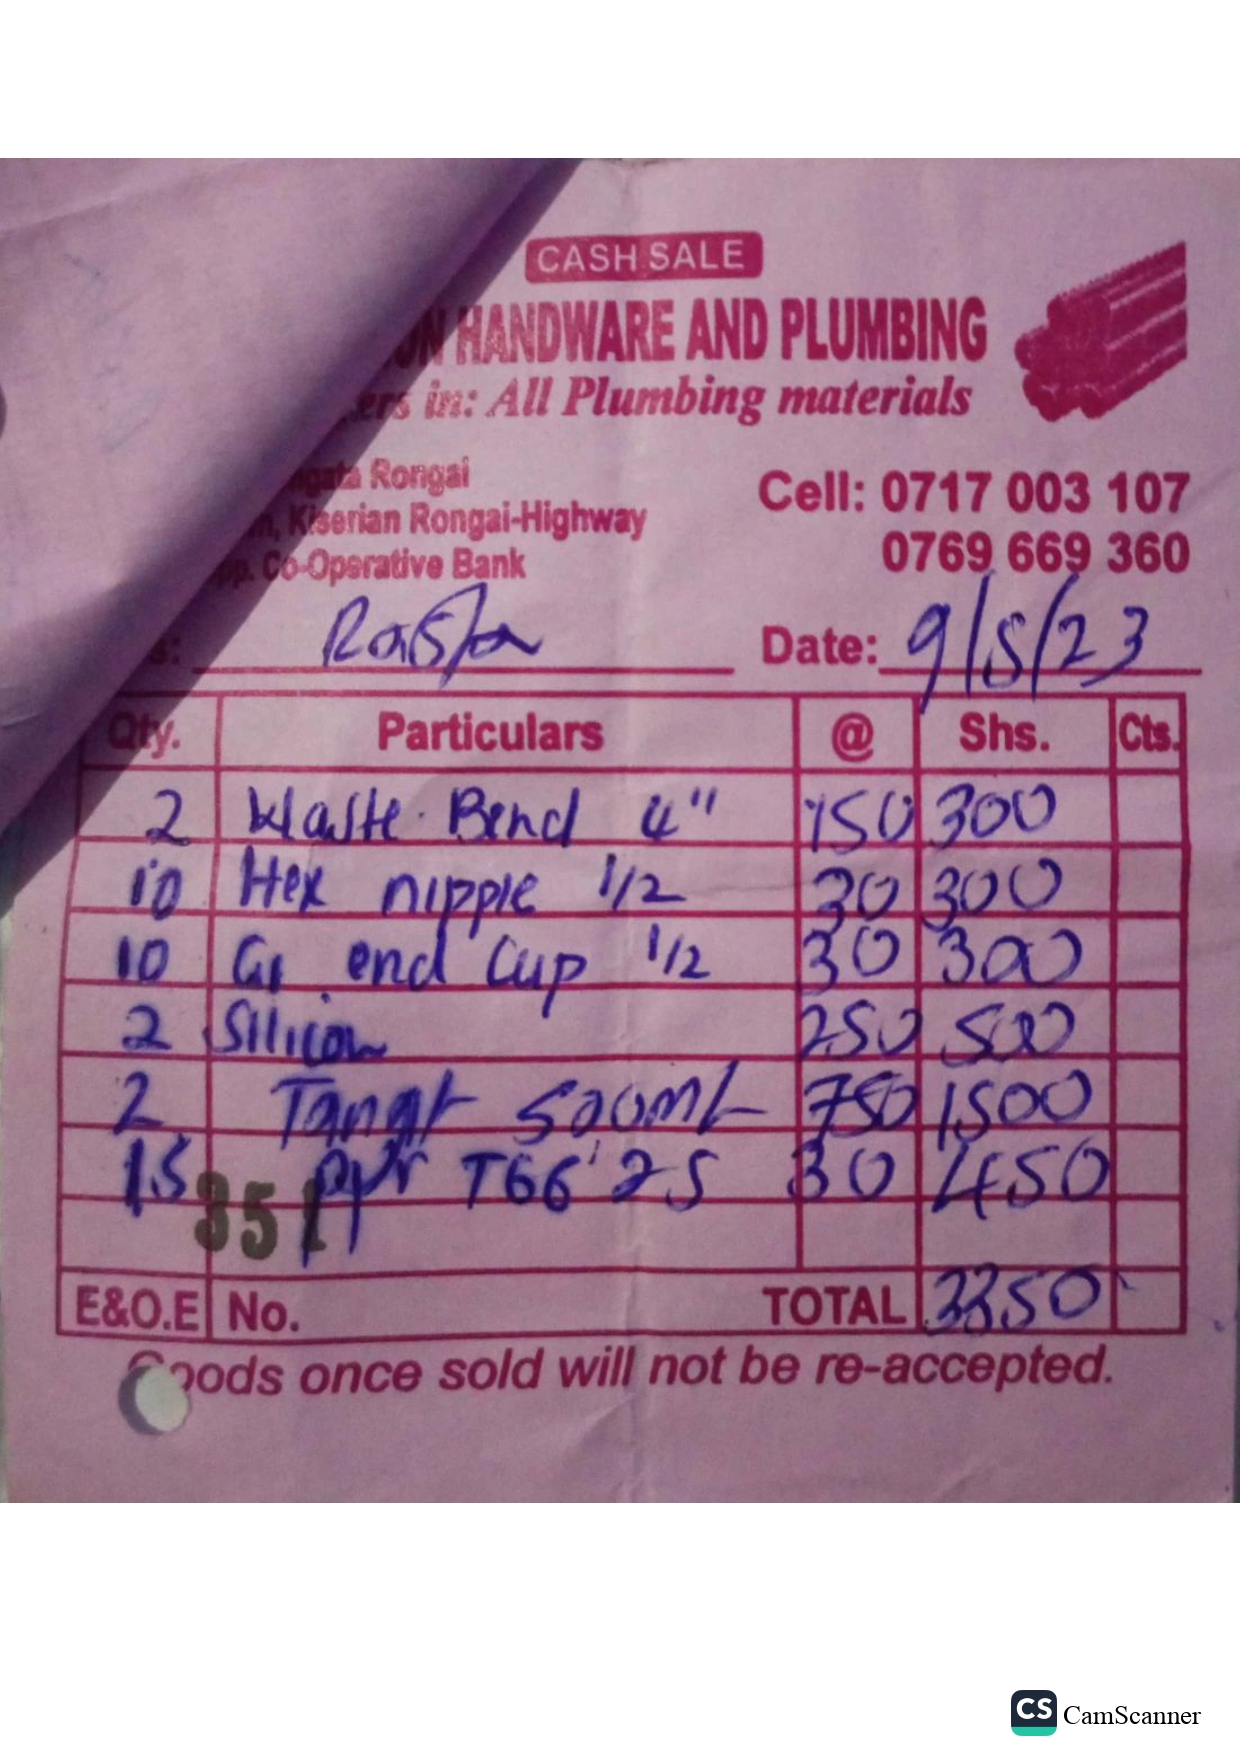 CASH SALE
ON HANDWARE AND PLUMBING
ers in: All Plumbing materials
ngata Rongai
Cell: 0717 003 107
n, Kiserian Rongai-Highway
0769 669 360
pp. Co-Operative Bank
s: Rasta Date: 9/5/23
Qty. Particulars @ Shs. Cts.
2 Waste Bend 4" 150 300
10 Hex nipple 1/2 30 300
10 GI end Cup 1/2 30 300
2 Silicon 250 500
2 Tangit 500ml 750 1500
15 ppr T66 25 30 450
351
E&O.E No. TOTAL 3350
Goods once sold will not be re-accepted.
CS CamScanner